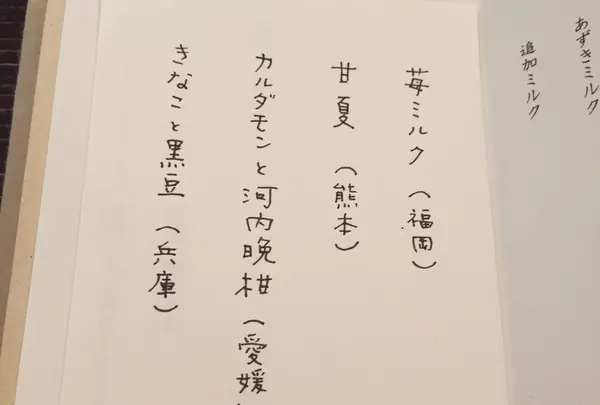 あずきミルク
追加ミルク
苺ミルク（福岡）
甘夏（熊本）
カルダモンと河内晩柑（愛媛
きなこと黒豆（兵庫）